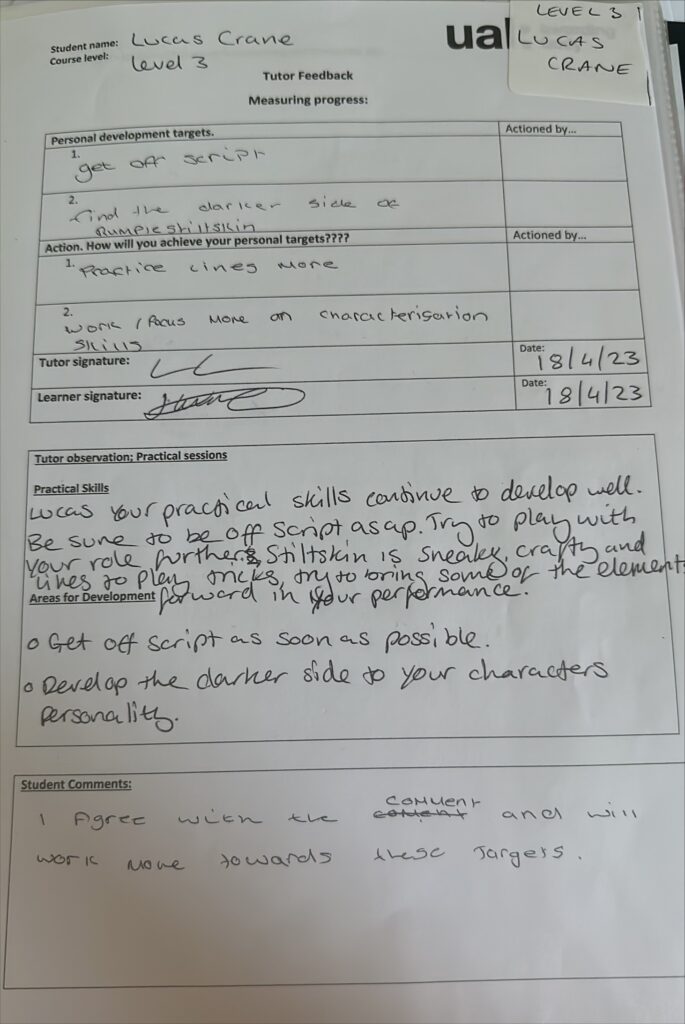 Student name: Lucas Crane
Course level: Level 3
ual
LEVEL 3
LUCAS
CRANE
Tutor Feedback
Measuring progress:
Personal development targets.
Actioned by...
1.
get off script
2.
find the darker side of
Rumplestiltskin
Action. How will you achieve your personal targets????
Actioned by...
1. Practice lines more
2.
work / focus more on characterisation
skills
Tutor signature:
Date:
18/4/23
Learner signature:
Date:
18/4/23
Tutor observation; Practical sessions
Practical Skills
Lucas your practical skills continue to develop well.
Be sure to be off script asap. Try to play with
your role further, Stiltskin is sneaky, crafty and
likes to play tricks, try to bring some of the element
forward in your performance.
Areas for Development
o Get off script as soon as possible.
o Develop the darker side to your characters
personality.
Student Comments:
I Agree with the comment and will
work more towards these targets.